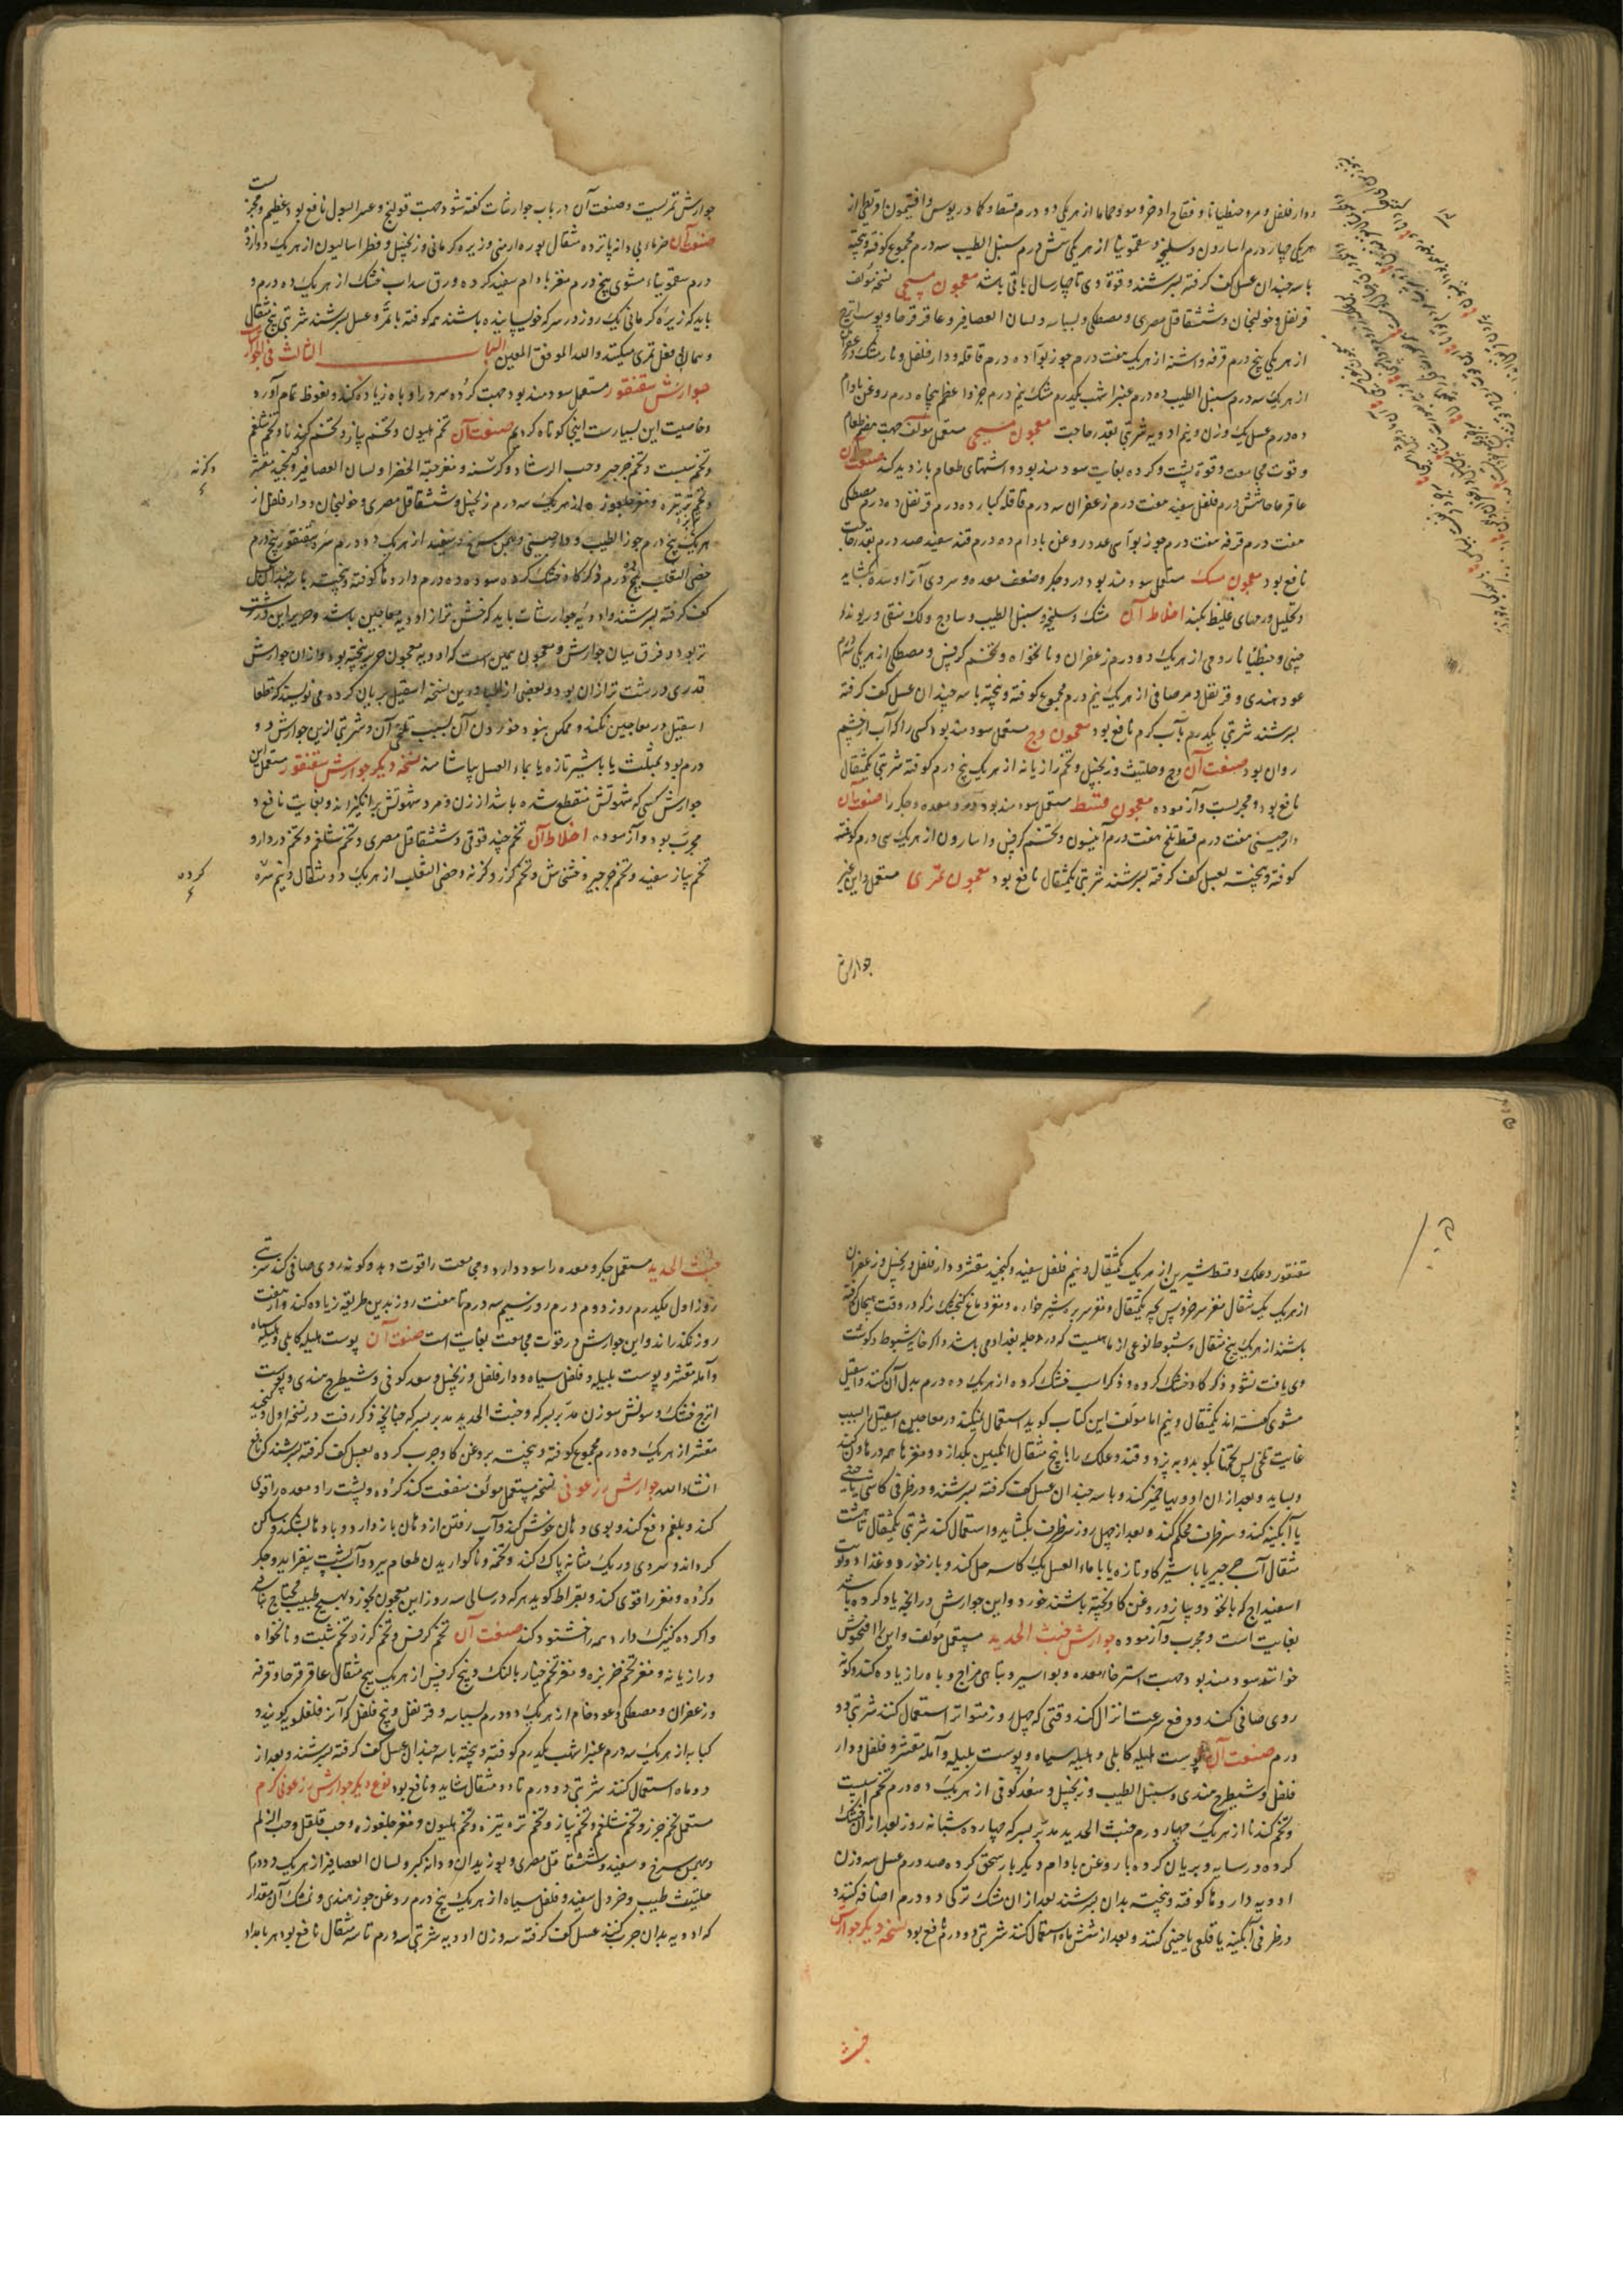 دار فلفل و مر و جنطیانا و فقاح اذخر و مو و حماما از هر یکی دو درم قسط و کمادریوس و افتیمون اقریطی از
هر یکی چهار درم اسارون و سلیخه و سقمونیا از هر یکی شش درم سنبل الطیب سه درم مجموع کوفته و پخته
با سه چندان عسل کف گرفته بسرشند و قوة وی تا چهار سال باقی باشد معجون مسیحی نسخه مؤلف
قرنفل و خولنجان و ششقاقل مصری و مصطکی و بسباسه و لسان العصافیر و عاقرقرحا و پوست اترج
از هر یکی پنج درم قرفه و اشنه از هر یک هفت درم جوز بوا ده درم قاقله و دار فلفل و نارمشک و زعفران
از هر یک سه درم سنبل الطیب ده درم عنبر اشهب یکدرم مشک نیم درم جزو اعظم پنجاه درم روغن بادام
ده درم عسل یک وزن و نیم ادویه شربتی بقدر حاجت معجون مسیحی مستعمل مؤلف جهت هضم طعام
و قوت مجامعت و قوة پشت و کرده بغایت سودمند بود و اشتهای طعام بازدید کند صنعت آن
عاقرقرحا شش درم فلفل سفید هفت درم زعفران سه درم قاقله کبار ده درم قرنفل ده درم مصطکی
هفت درم قرفه هفت درم جوز بوا سی عدد روغن بادام ده درم قند سفید صد درم بقدر حاجت
نافع بود معجون مسک مستعمل سودمند بود درد جگر و ضعف معده و سردی آزا و سده بکشاید
و تحلیل ورمهای غلیظ بکند اخلاط آن مشک و سلیخه و سنبل الطیب و ساذج و لک منقی و ریوند
چینی و جنطیانا رومی از هر یک دو درم زعفران و نانخواه و تخم کرفس و مصطکی از هر یکی سه درم
عود هندی و قرنفل و مر صافی از هر یک نیم درم مجموع کوفته و پخته با سه چندان عسل کف گرفته
بسرشند شربتی یکدرم بآب کرم نافع بود معجون وج مستعمل سودمند بود کسی را که آب از چشم
روان بود صنعت آن وج و حلتیت و زنجبیل و تخم رازیانه از هر یک پنج درم کوفته شربتی یکمثقال
نافع بود و مجربست و آزموده معجون قسط مستعمل سودمند بود درد معده و جگر را صنعت آن
دارچینی هفت درم قسط تلخ هفت درم انیسون و تخم کرفس و اسارون از هر یک سی درم کوفته
کوفته و پخته بعسل کف گرفته بسرشند شربتی یکمثقال نافع بود معجون تمری مستعمل و این غیر
جوارش
جوارش تمریست و صنعت آن در باب جوارشات گفته شود جهت قولنج و عسر البول نافع بود عظیم و مجربست
صنعت آن خرماء بی دانه پانزده مثقال بوره ارمنی و زیره کرمانی و زنجبیل و فطراسالیون از هر یک دوازده
درم سقمونیاء مشوی پنج درم مغز بادام سفید کرده و ورق سداب خشک از هر یک ده درم و
باید که زیره کرمانی یک روز در سرکه خیسانیده باشند همه کوفته با تمر و عسل بسرشند شربتی پنج مثقال
و عمل فعل تمری میکند والله الموفق المعین الباب الثالث فی الجوارش
جوارش سقنقور مستعمل سودمند بود جهت کرده سرد را و باه زیاده کند و نعوظ تمام آورد
و خاصیت این بسیارست اینجا کوتاه کردیم صنعت آن تخم هلیون و تخم پیاز و تخم کندنا و تخم شلغم
و تخم سبت و تخم جرجیر و حب الرشاد و کرسنه و مغز حبة الخضرا و لسان العصافیر و کنجید مقشر
و تخم ترتیزه و مغز جلغوزه از هر یک سه درم زنجبیل و ششقاقل مصری و خولنجان و دار فلفل از
هر یک پنج درم جوز الطیب و دارچینی و بهمن سرخ و سفید از هر یک دو درم سره سقنقور پنج درم
خصی الثعلب پنج درم ذکر کاو خشک کرده سوده ده درم داروها کوفته و پخته با سه چندان عسل
کف گرفته بسرشند و ادویه جوارشات باید که خشن تر از ادویه معاجین باشد و حریر این درشت
تر بود و فرق میان جوارش و معجون همین است که ادویه معجون حریر پخته بود و از آن جوارش
قدری درشت تر از آن بود و بعضی از اطبا درین نسخه اسقیل بریان کرده می نویسند که قطعا
اسقیل در معاجین نکنند و ممکن نبود خوردن آن بسبب تلخی آن و شربتی ازین جوارش دو
درم بود بمثلث یا با شیر تازه یا بماء العسل بیاشامند نسخه دیگر جوارش سقنقور مستعمل این
جوارش کسی که شهوتش منقطع شده باشد از زن و مرد شهوتش برانگیزاند و بغایت نافع و
مجرب بود و آزموده اخلاط آن تخم جند قوقی و ششقاقل مصری و تخم شلغم و تخم دردار و
تخم پیاز سفید و تخم جرجیر و خشخاش و تخم کزر و کرنه و خصی الثعلب از هر یک دو مثقال و نیم سره
کرده
سقنقور و علک و قسط شیرین از هر یک یکمثقال و نیم فلفل سفید و کنجید مقشر و دار فلفل و زنجبیل و زعفران
از هر یک یک مثقال مغز سر خروس بچه یکمثقال و مغز سر بره شیرخواره و مغز دماغ گنجشک نر که در وقت هیجان گرفته
باشند از هر یک پنج مثقال و شبوط نوعی از ماهیست که در دجله بغداد می باشد و اگر خایه شبوط و گوشت
وی یافت نشود ذکر کاو خشک کرده و ذکر اسب خشک کرده از هر یک ده درم بدل آن کنند و اسقیل
مشوی گفته اند یکمثقال و نیم اما مؤلف این کتاب گوید استعمال نیکند در معاجین اسقیل بسبب
غایت تلخی پس تخمها بکوبد و بپزد و قند و علک را با پنج مثقال انگبین بگدازد و مغزها همه در هاون کند
و بساید و بعد از آن ادویها خمیر کند و با سه چندان عسل کف گرفته بسرشند و در ظرفی کاشی یا چینی
یا آبگینه کنند و سر ظرف محکم کنند و بعد از چهل روز سر ظرف بکشاید و استعمال کنند شربتی یکمثقال تا هشت
مثقال آب جرجیر یا با شیر کاو تازه یا با ماء العسل یک کاسه حل کند و باز خورد و غذا دو نوبت
اسفیداج که با نخود و پیاز و روغن کاو پخته باشند خورد و این جوارش در آنچه یاد کرده باشد
بغایت است و مجرب و آزموده جوارش خبث الحدید مستعمل مؤلف و این را افنجوش
خوانند سودمند بود جهت استرخاء معده و بواسیر و تباهی مزاج و باه را زیاده کند و گونه
روی صافی کند و دفع سرعت انزال کند وقتی که چهل روز متواتر استعمال کنند شربتی دو
درم صنعت آن پوست هلیله کابلی و هلیله سیاه و پوست بلیله و آمله مقشر و فلفل و دار
فلفل و شیطرج هندی و سنبل الطیب و زنجبیل و سعد کوفی از هر یک ده درم تخم سبت
و تخم کندنا از هر یک چهار درم خبث الحدید مدبر بسرکه چهارده شبانه روز بعد از آن خشک
کرده در سایه و بریان کرده با روغن بادام و دیگر بار سحق کرده صد درم عسل سه وزن
ادویه داروها کوفته و پخته بدان بسرشند بعد از آن مشک ترکی دو درم اضافه کنند و
در ظرفی آبگینه یا قلعی یا چینی کنند و بعد از شش ماه استعمال کنند شربتی دو درم نافع بود نسخه دیگر جوارش
خبث
خبث الحدید مستعمل جگر و معده را سود دارد و مجامعت را قوت دهد و گونه روی صافی کند شربتی
روز اول یکدرم روز دوم دو درم روز سیم سه درم تا هفت روز بدین طریقه زیاده کند و از هفت
روز نگذراند و این جوارش در قوت مجامعت بغایت است صنعت آن پوست هلیله کابلی و هلیله سیاه
و آمله مقشر و پوست بلیله و فلفل سیاه و دار فلفل و زنجبیل و سعد کوفی و شیطرج هندی و پوست
اترج خشک و سونش سوزن مدبر بسرکه و خبث الحدید مدبر بسرکه چنانچه ذکر رفت در نسخه اول و کنجید
مقشر از هر یک ده درم مجموع کوفته و پخته بروغن کاو چرب کرده بعسل کف گرفته بسرشند که نافع
انشاء الله جوارش زرعونی نسخه مستعمل مؤلف منفعت کند گرده و پشت را و معده را قوی
کند و بلغم دفع کند و بوی دهان خوش کند و آب رفتن از دهان باز دارد و بادها بشکند و ساکن
کرداند و سردی و ریک مثانه پاک کند و تخمه و ناکواریدن طعام ببرد و آب پشت بیفزاید و جگر
و گرده و مغز را قوی کند و بقراط گوید هر که در سالی سه روز این معجون بخورد بهیچ طبیب محتاج نباشد
و اگر ده کنیزک دارد همه را خشنود کند صنعت آن تخم کرفس و تخم کزر و تخم شبت و نانخواه
و رازیانه و مغز تخم خربزه و مغز تخم خیار بالنک و بیخ کرفس از هر یک پنج مثقال عاقرقرحا و قرفه
و زعفران و مصطکی و عود خام از هر یک دو درم بسباسه و قرنفل و بیخ فلفل که آنرا فلفلمویه گویند و
کبابه از هر یک سه درم عنبر اشهب یکدرم کوفته و پخته با سه چندان عسل کف گرفته بسرشند و بعد از
دو ماه استعمال کنند شربتی دو درم تا دو مثقال شاید و نافع بود نوع دیگر جوارش زرعونی گرم
مستعمل تخم جزر و تخم شلغم و تخم پیاز و تخم تره تیزه و تخم هلیون و مغز جلغوزه و حب قلقل و حب الزلم
و بهمن سرخ و سفید و ششقاقل مصری و بوزیدان و دانه کبر و لسان العصافیر از هر یک دو درم
حلتیت طیب و خردل سفید و فلفل سیاه از هر یک پنج درم روغن جوز هندی و مشک آن مقدار
که ادویه بدان چرب کنند عسل کف گرفته سه وزن ادویه شربتی سه درم تا سه مثقال نافع بود هر بامداد